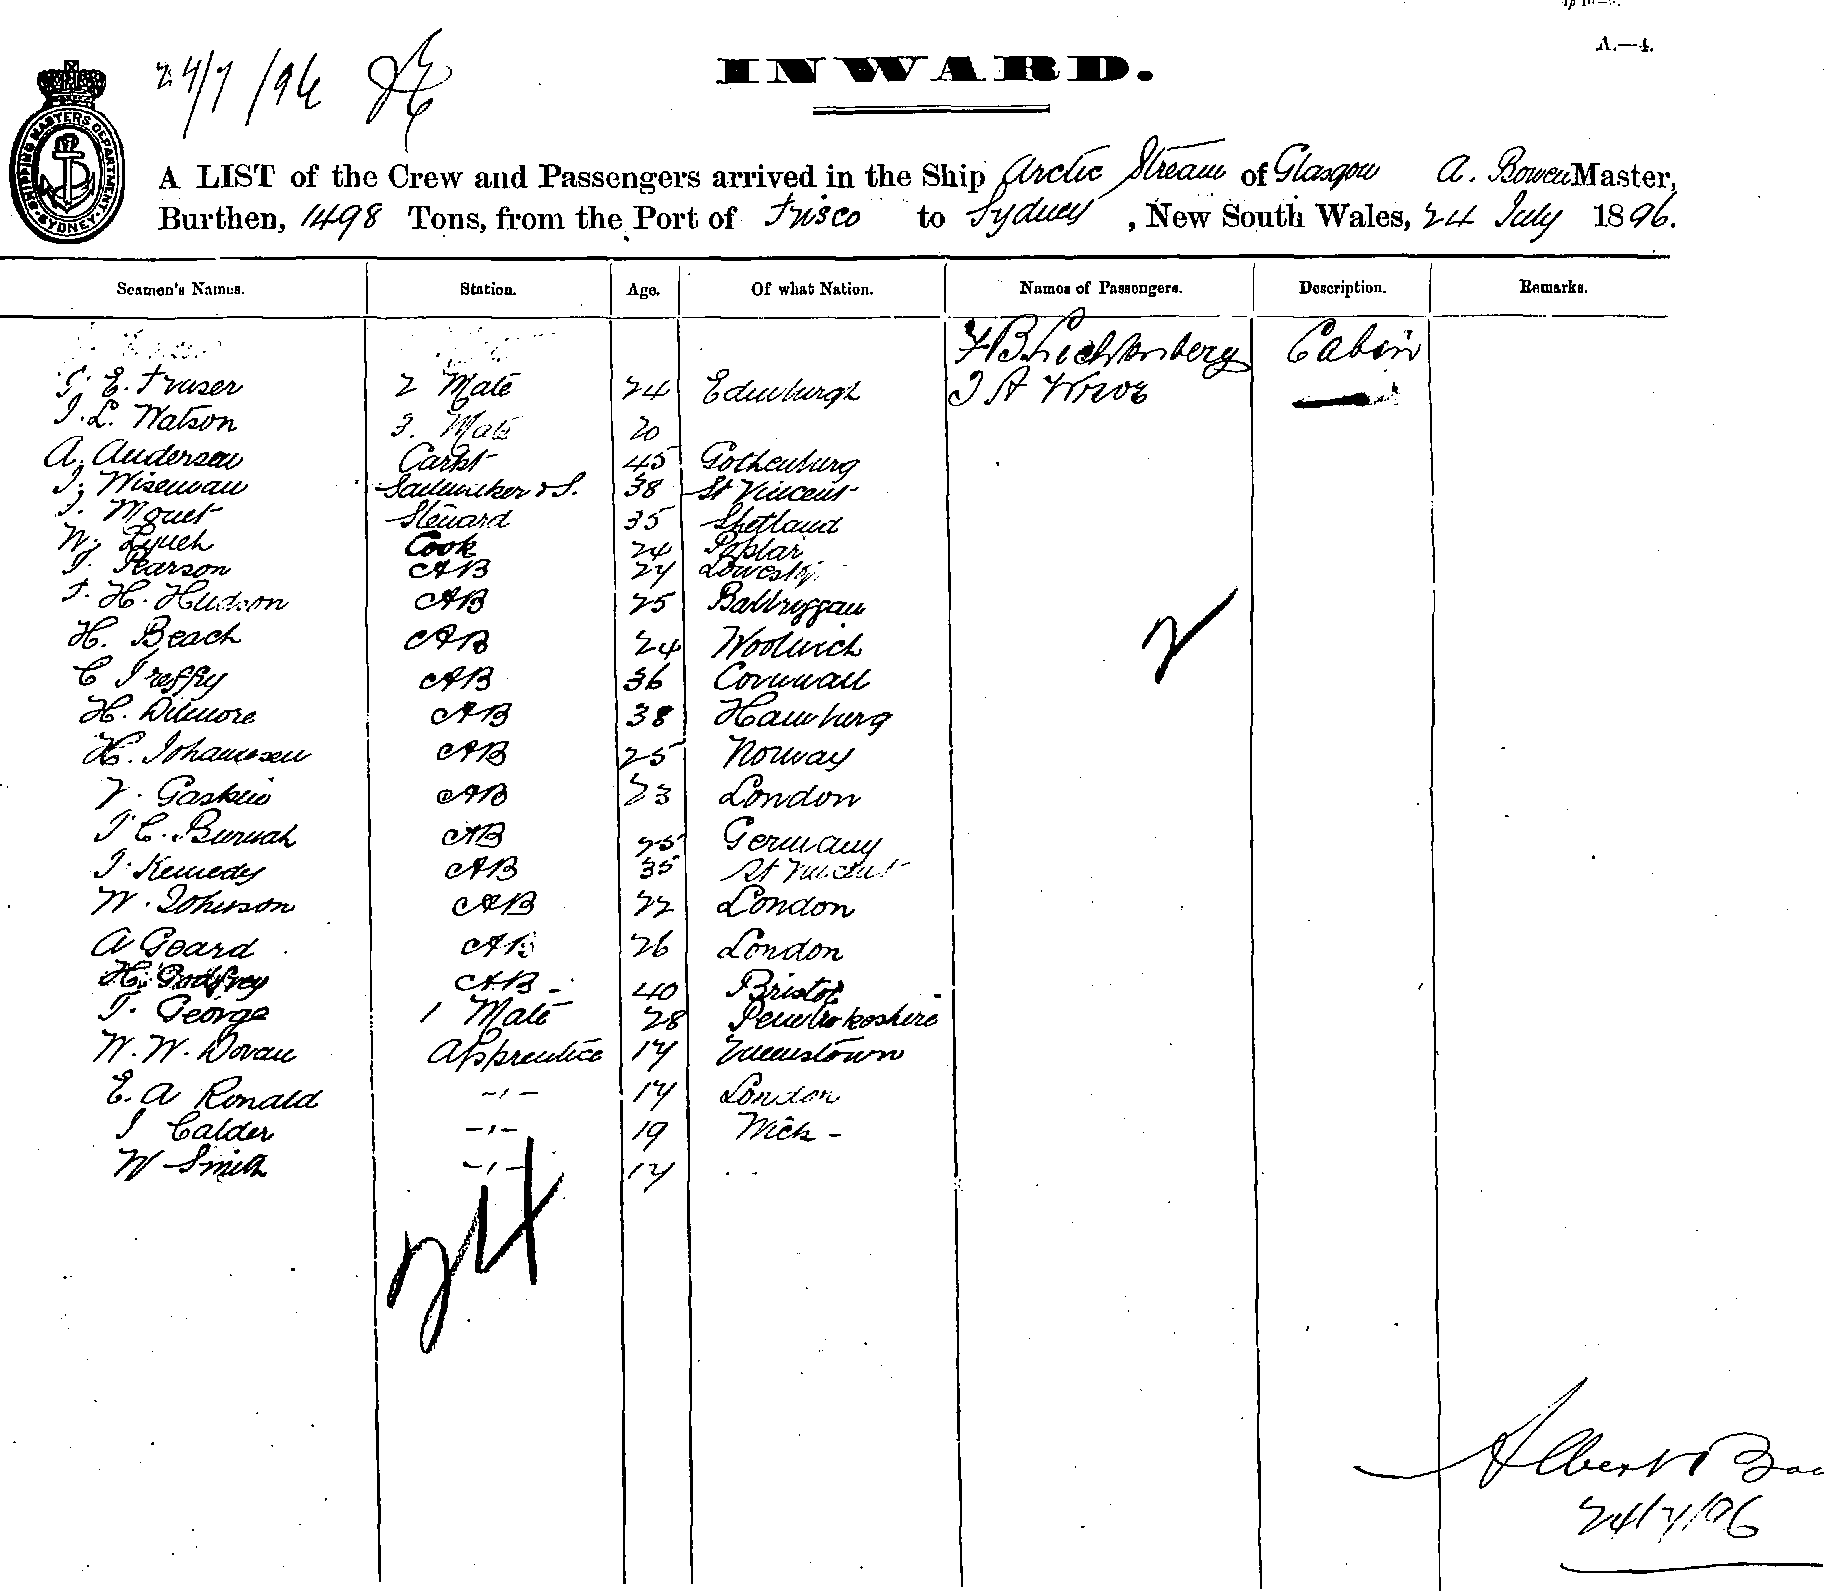 A.—4.
24/7/96
INWARD.
SHIPPING MASTERS DEPARTMENT SYDNEY
A LIST of the Crew and Passengers arrived in the Ship Arctic Stream of Glasgow A. Bowen Master,
Burthen, 1498 Tons, from the Port of Frisco to Sydney, New South Wales, 24 July 1896.
Seamen's Names. Station. Age. Of what Nation. Names of Passengers. Description. Remarks.
Cabin
G. E. Fraser 2 Mate 24 Edinburgh
J. L. Watson 3. Mate 20
A. Andersen Carpt 45 Gothenburg
J. Wiseman Sailmaker & S. 38 St Vincent
J. Mouet Steward 35 Shetland
W. Lynch Cook 24 Poplar
J. Pearson AB 27
J. H. Hudson AB 25 Balbriggan
H. Beach AB 24 Woolwich
C Treffry AB 36 Cornwall
H. Dilmore AB 38 Hamburg
H. Johannsen AB 25 Norway
Gaskin AB 23 London
J C. AB 25 Germany
J Kennedy AB 35 St Vincent
W. Johnson AB 22 London
A Geard AB 26 London
H. Godfrey AB - 40 Bristol
T. George 1 Mate 28 Pembrokeshire
W. W. Doran Apprentice 17 Queenstown
E. A Ronald -,,- 17 London
J Calder -,,- 19 Wick -
W Smith -,,- 17
2
24
Albert
24/7/96